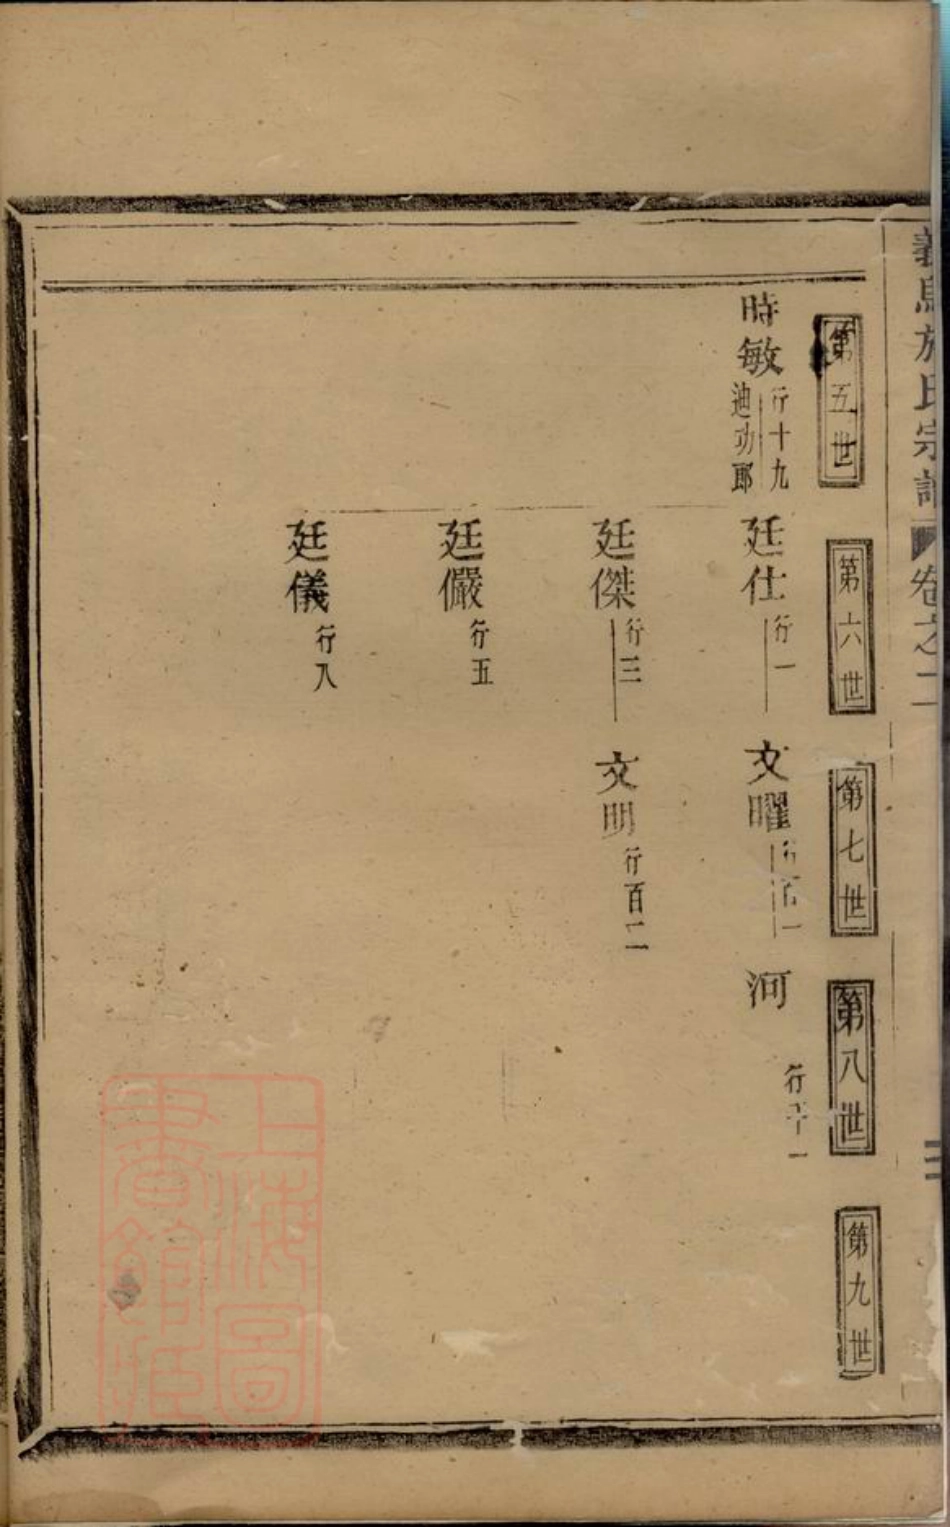 義烏施氏宗譜 卷之二
第五世
第六世
第七世
第八世
第九世
時敏 行十九 迪功郎
廷仕 行一
文曜 行百一
河 行十一
廷傑 行三
文明 行百二
廷儼 行五
廷儀 行八
上海圖書館藏